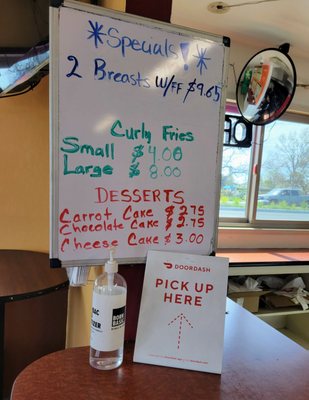 *Specials!*
2 Breasts w/FF $9.65
Curly Fries
Small $4.00
Large $8.00
DESSERTS
Carrot Cake $2.75
Chocolate Cake $2.75
Cheese Cake $3.00
DOORDASH
PICK UP
HERE